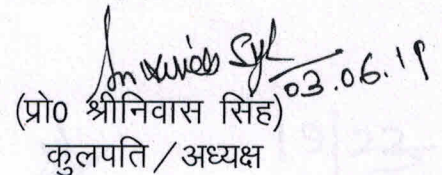 03.06.19
(प्रो0 श्रीनिवास सिंह)
कुलपति / अध्यक्ष